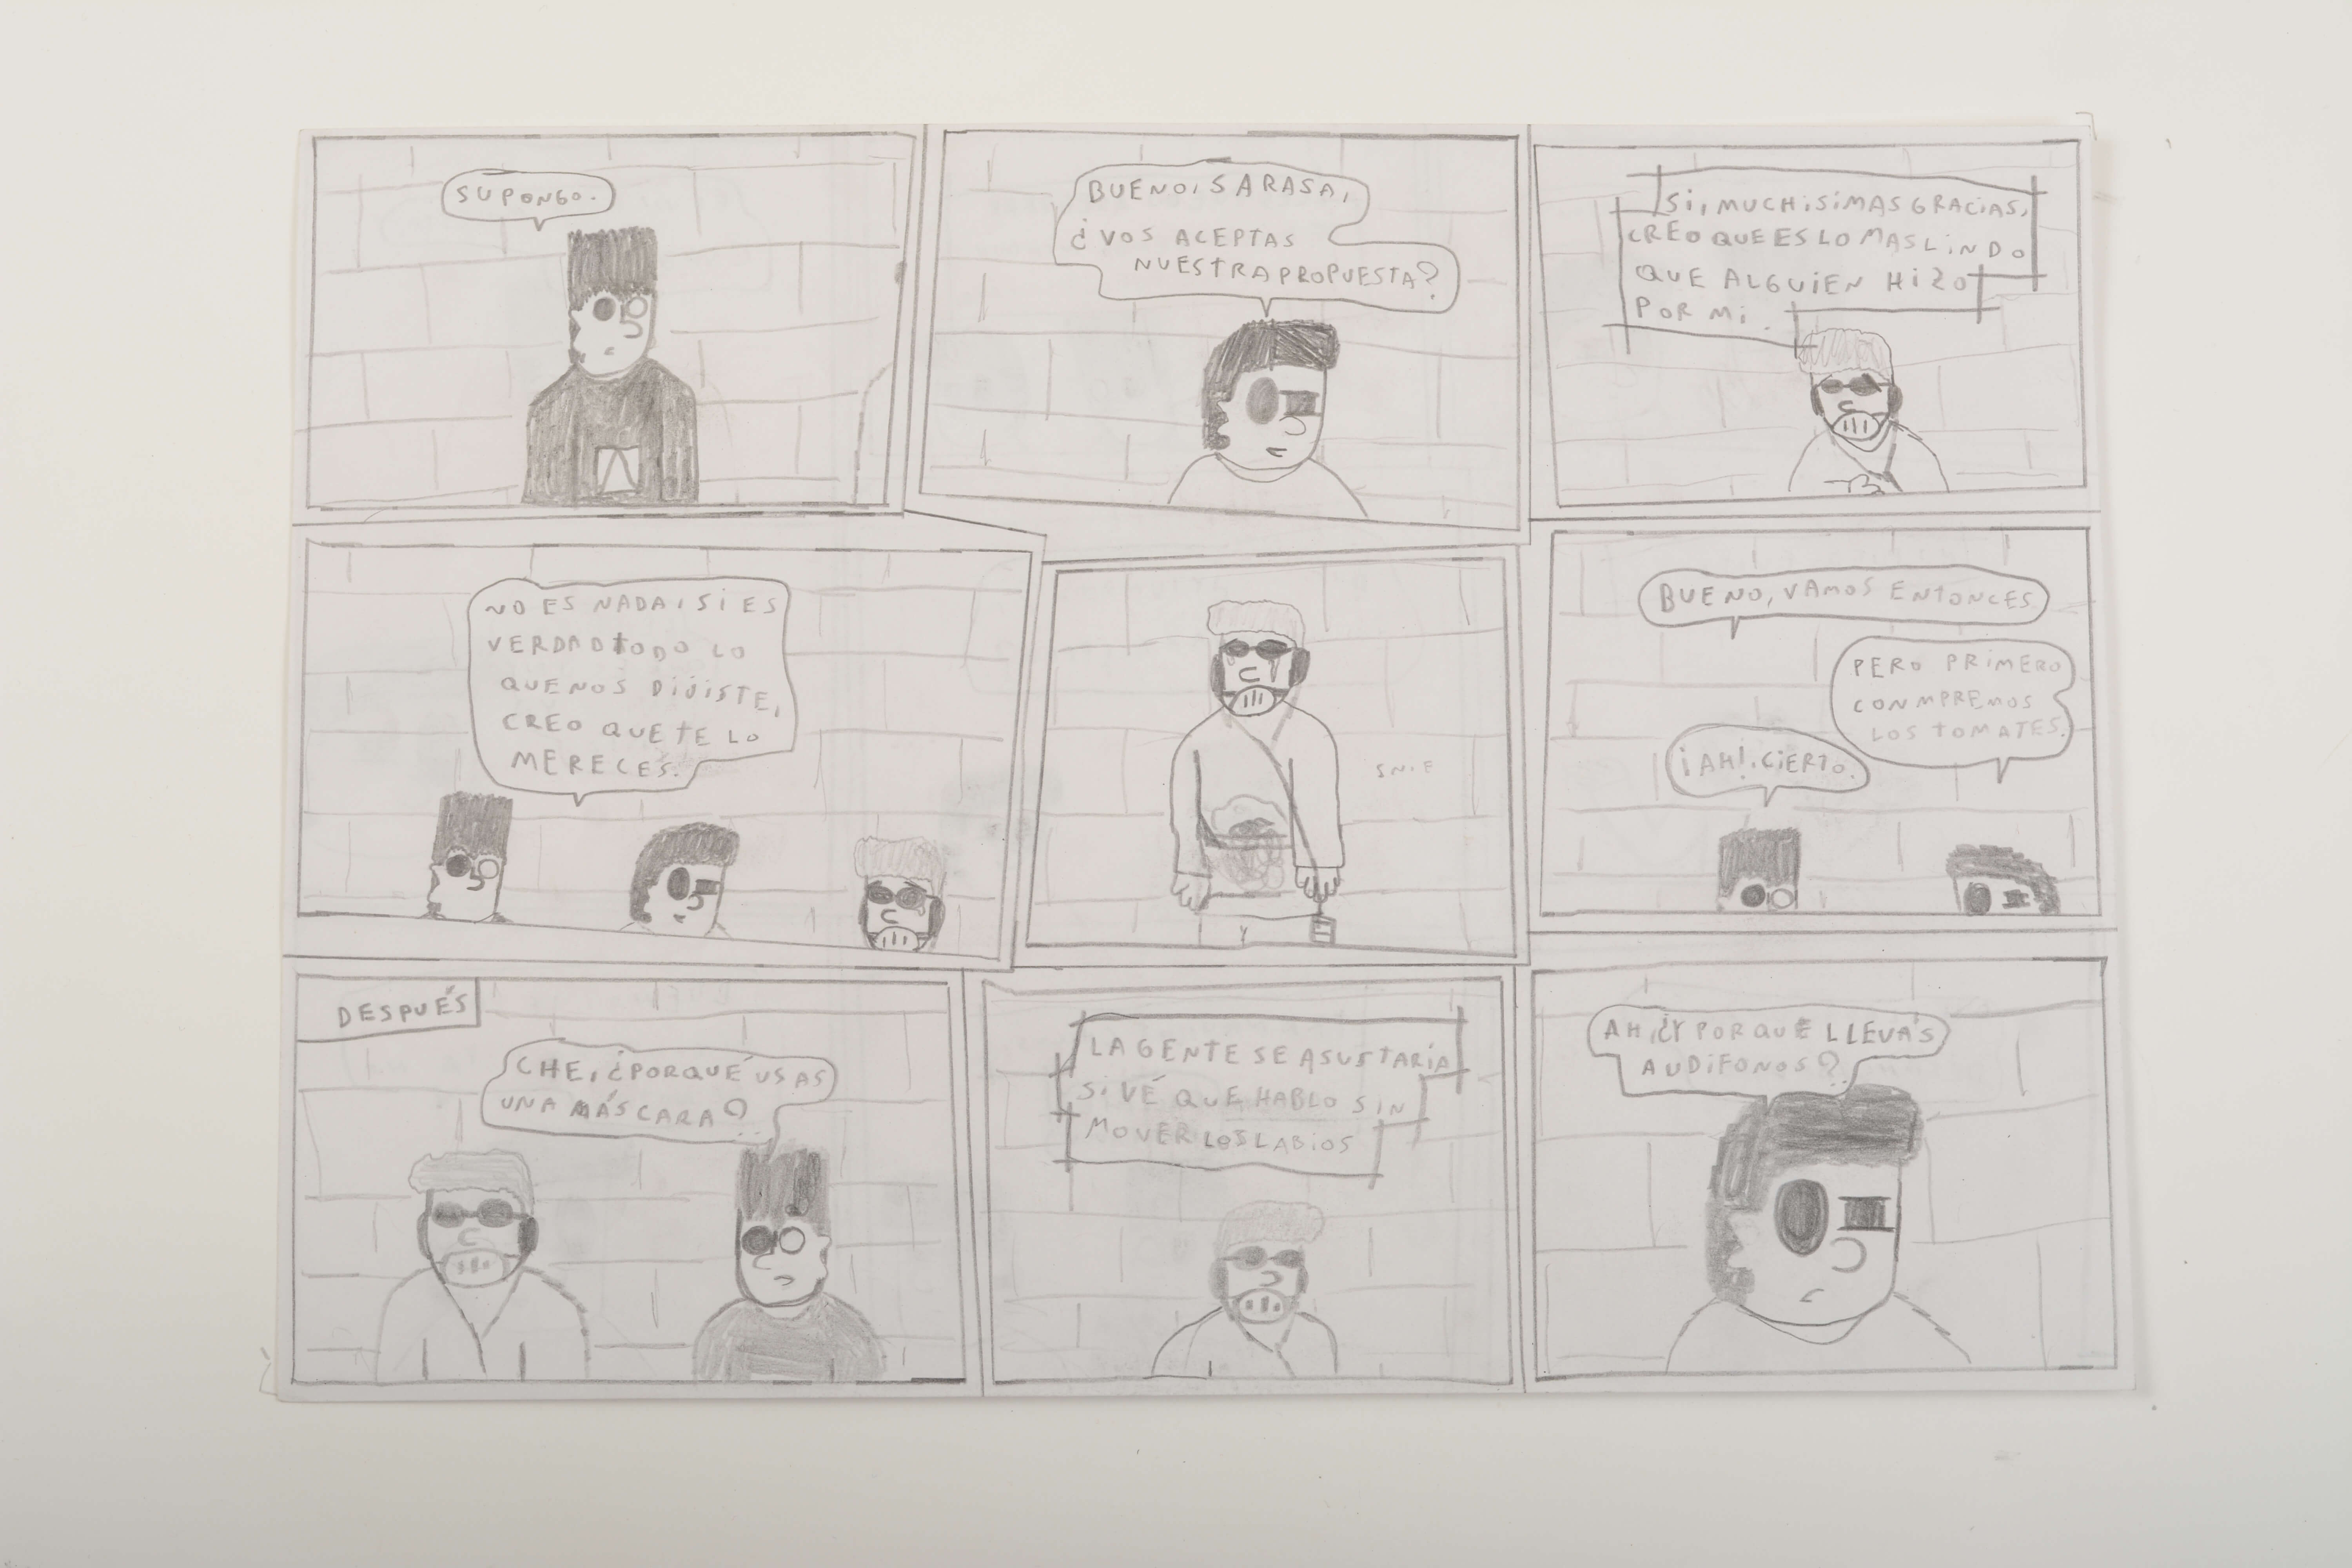 SUPONGO.
BUENO, SARASA,
¿VOS ACEPTAS
NUESTRA PROPUESTA?
SI, MUCHISIMAS GRACIAS,
CREO QUE ES LO MAS LINDO
QUE ALGUIEN HIZO
POR MI.
NO ES NADA, SI ES
VERDAD TODO LO
QUE NOS DIJISTE,
CREO QUE TE LO
MERECÉS.
SNIF
BUENO, VAMOS ENTONCES
PERO PRIMERO
CONMPREMOS
LOS TOMATES.
¡AH!, CIERTO.
DESPUÉS
CHE, ¿PORQUÉ USAS
UNA MÁSCARA?
LA GENTE SE ASUSTARÍA
SI VÉ QUE HABLO SIN
MOVER LOS LABIOS
AH, ¿Y PORQUÉ LLEVÁS
AUDIFONOS?